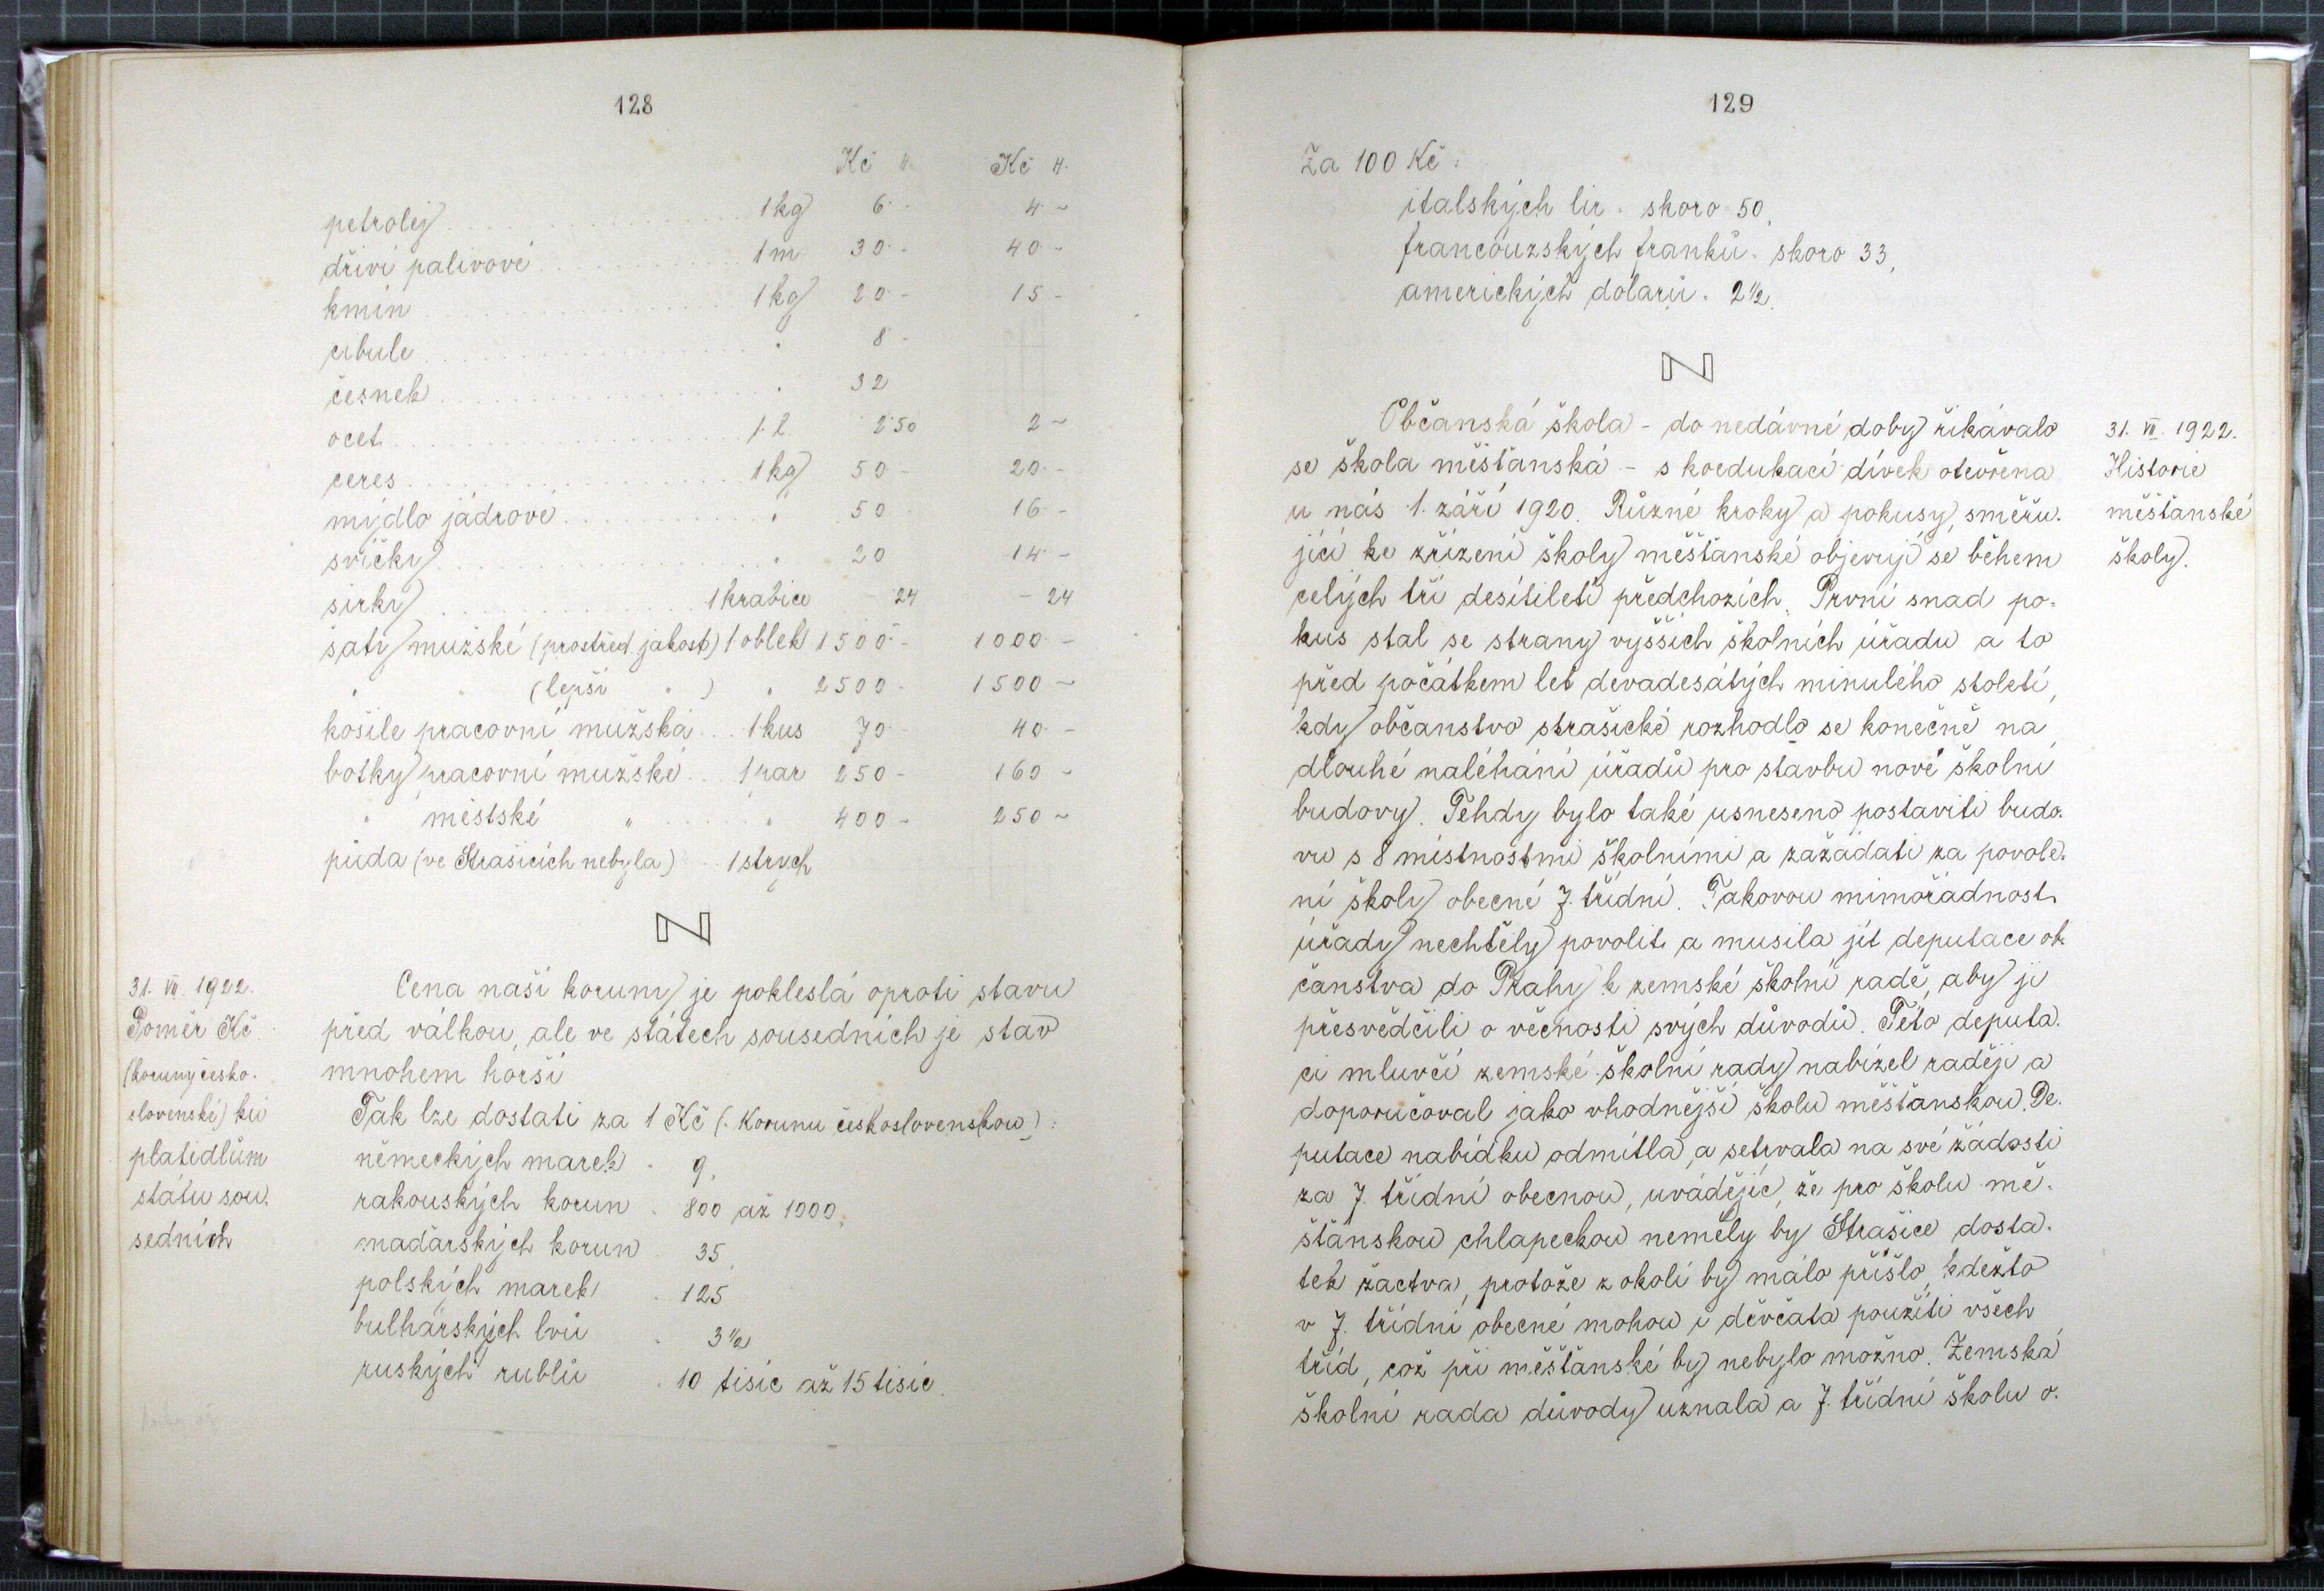 128
Kč H. Kč H.
petrolej . . . 1 kg 6 - 4 -
dříví palivové . . . 1 m 30 - 40 -
kmín . . . 1 kg 20 - 15 -
cibule . . . " 8 -
česnek . . . " 32
ocet . . . 1 l. 2·50 2 -
ceres . . . 1 kg 50 - 20 -
mýdlo jádrové . . . " 50 16 -
svíčky . . . " 20 14 -
sirky . . . 1 krabice - 24 - 24
šaty mužské (prostřed. jakost) 1 oblek 1500 - 1000 -
" " (lepší " ) " 2500 - 1500 -
košile pracovní mužská . . . 1 kus 70 - 40 -
botky pracovní mužské . . . 1 pár 250 - 160 -
" městské " . . . " 400 - 250 -
půda (ve Strašicích nebyla) . . . 1 strych
31. VII. 1922.
Poměr Kč
(koruny česko-
slovenské) ku
platidlům
státu sou-
sedních
Cena naší koruny je pokleslá oproti stavu
před válkou, ale ve státech sousedních je stav
mnohem horší
Tak lze dostati za 1 Kč (: Korunu československou):
německých marek . 9,
rakouských korun . 800 až 1000,
maďarských korun 35,
polských marek . 125
bulharských lvů . 3 1/2
ruských rublů . 10 tisíc až 15 tisíc.
129
Za 100 Kč:
italských lir . skoro 50,
francouzských franků . skoro 33,
amerických dolarů . 2 1/2.
31. VII. 1922.
Historie
měšťanské
školy.
Občanská škola - do nedávné doby říkávalo
se škola měšťanská - s koedukací dívek otevřena
u nás 1. září 1920. Různé kroky a pokusy, směřu-
jící ke zřízení školy měšťanské objevují se během
celých tří desítiletí předchozích. První snad po-
kus stal se strany vyšších školních úřadu a to
před počátkem let devadesátých minulého století,
kdy občanstvo strašické rozhodlo se konečně na
dlouhé naléhání úřadů pro stavbu nové školní
budovy. Tehdy bylo také usneseno postaviti budo-
vu s 8 místnostmi školními a zažádati za povole-
ní školy obecné 7. třídní. Takovou mimořádnost
úřady nechtěly povolit a musila jít deputace ob-
čanstva do Prahy k zemské školní radě, aby ji
přesvědčili o věcnosti svých důvodů. Této deputa-
ci mluvčí zemské školní rady nabízel raději a
doporučoval jako vhodnější školu měšťanskou. De-
putace nabídku odmítla a setrvala na své žádosti
za 7. třídní obecnou, uvádějíc, že pro školu mě-
šťanskou chlapeckou neměly by Strašice dosta-
tek žactva, protože z okolí by málo přišlo, kdežto
v 7. třídní obecné mohou i děvčata použíti všech
tříd, což při měšťanské by nebylo možno. Zemská
školní rada důvody uznala a 7. třídní školu o-